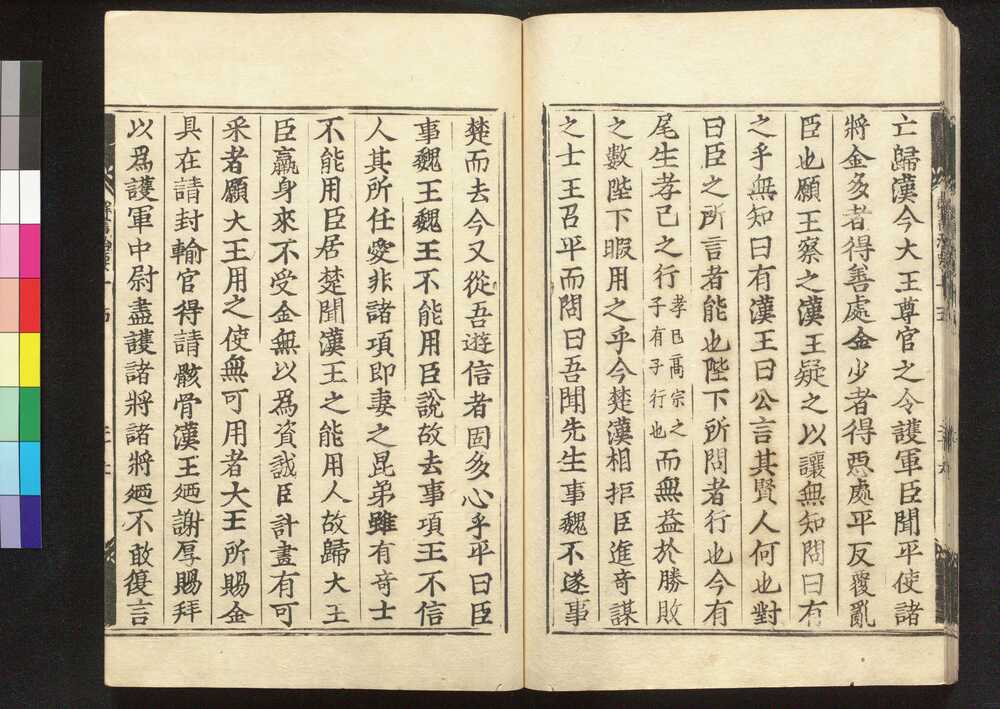 亡歸漢今大王尊官之令護軍臣聞平使諸
將金多者得善處金少者得惡處平反覆亂
臣也願王察之漢王疑之以讓無知問曰有
之乎無知曰有漢王曰公言其賢人何也對
曰臣之所言者能也陛下所問者行也今有
尾生孝己之行孝己髙宗之子有孝行也而無益於勝敗
之數陛下暇用之乎今楚漢相拒臣進奇謀
之士王召平而問曰吾聞先生事魏不遂事
楚而去今又從吾遊信者固多心乎平曰臣
事魏王魏王不能用臣說故去事項王不信
人其所任愛非諸項即妻之昆弟雖有奇士
不能用臣居楚聞漢王之能用人故歸大王
臣臝身來不受金無以為資誠臣計畫有可
采者願大王用之使無可用者大王所賜金
具在請封輸官得請骸骨漢王廼謝厚賜拜
以為護軍中尉盡護諸將諸將廼不敢復言